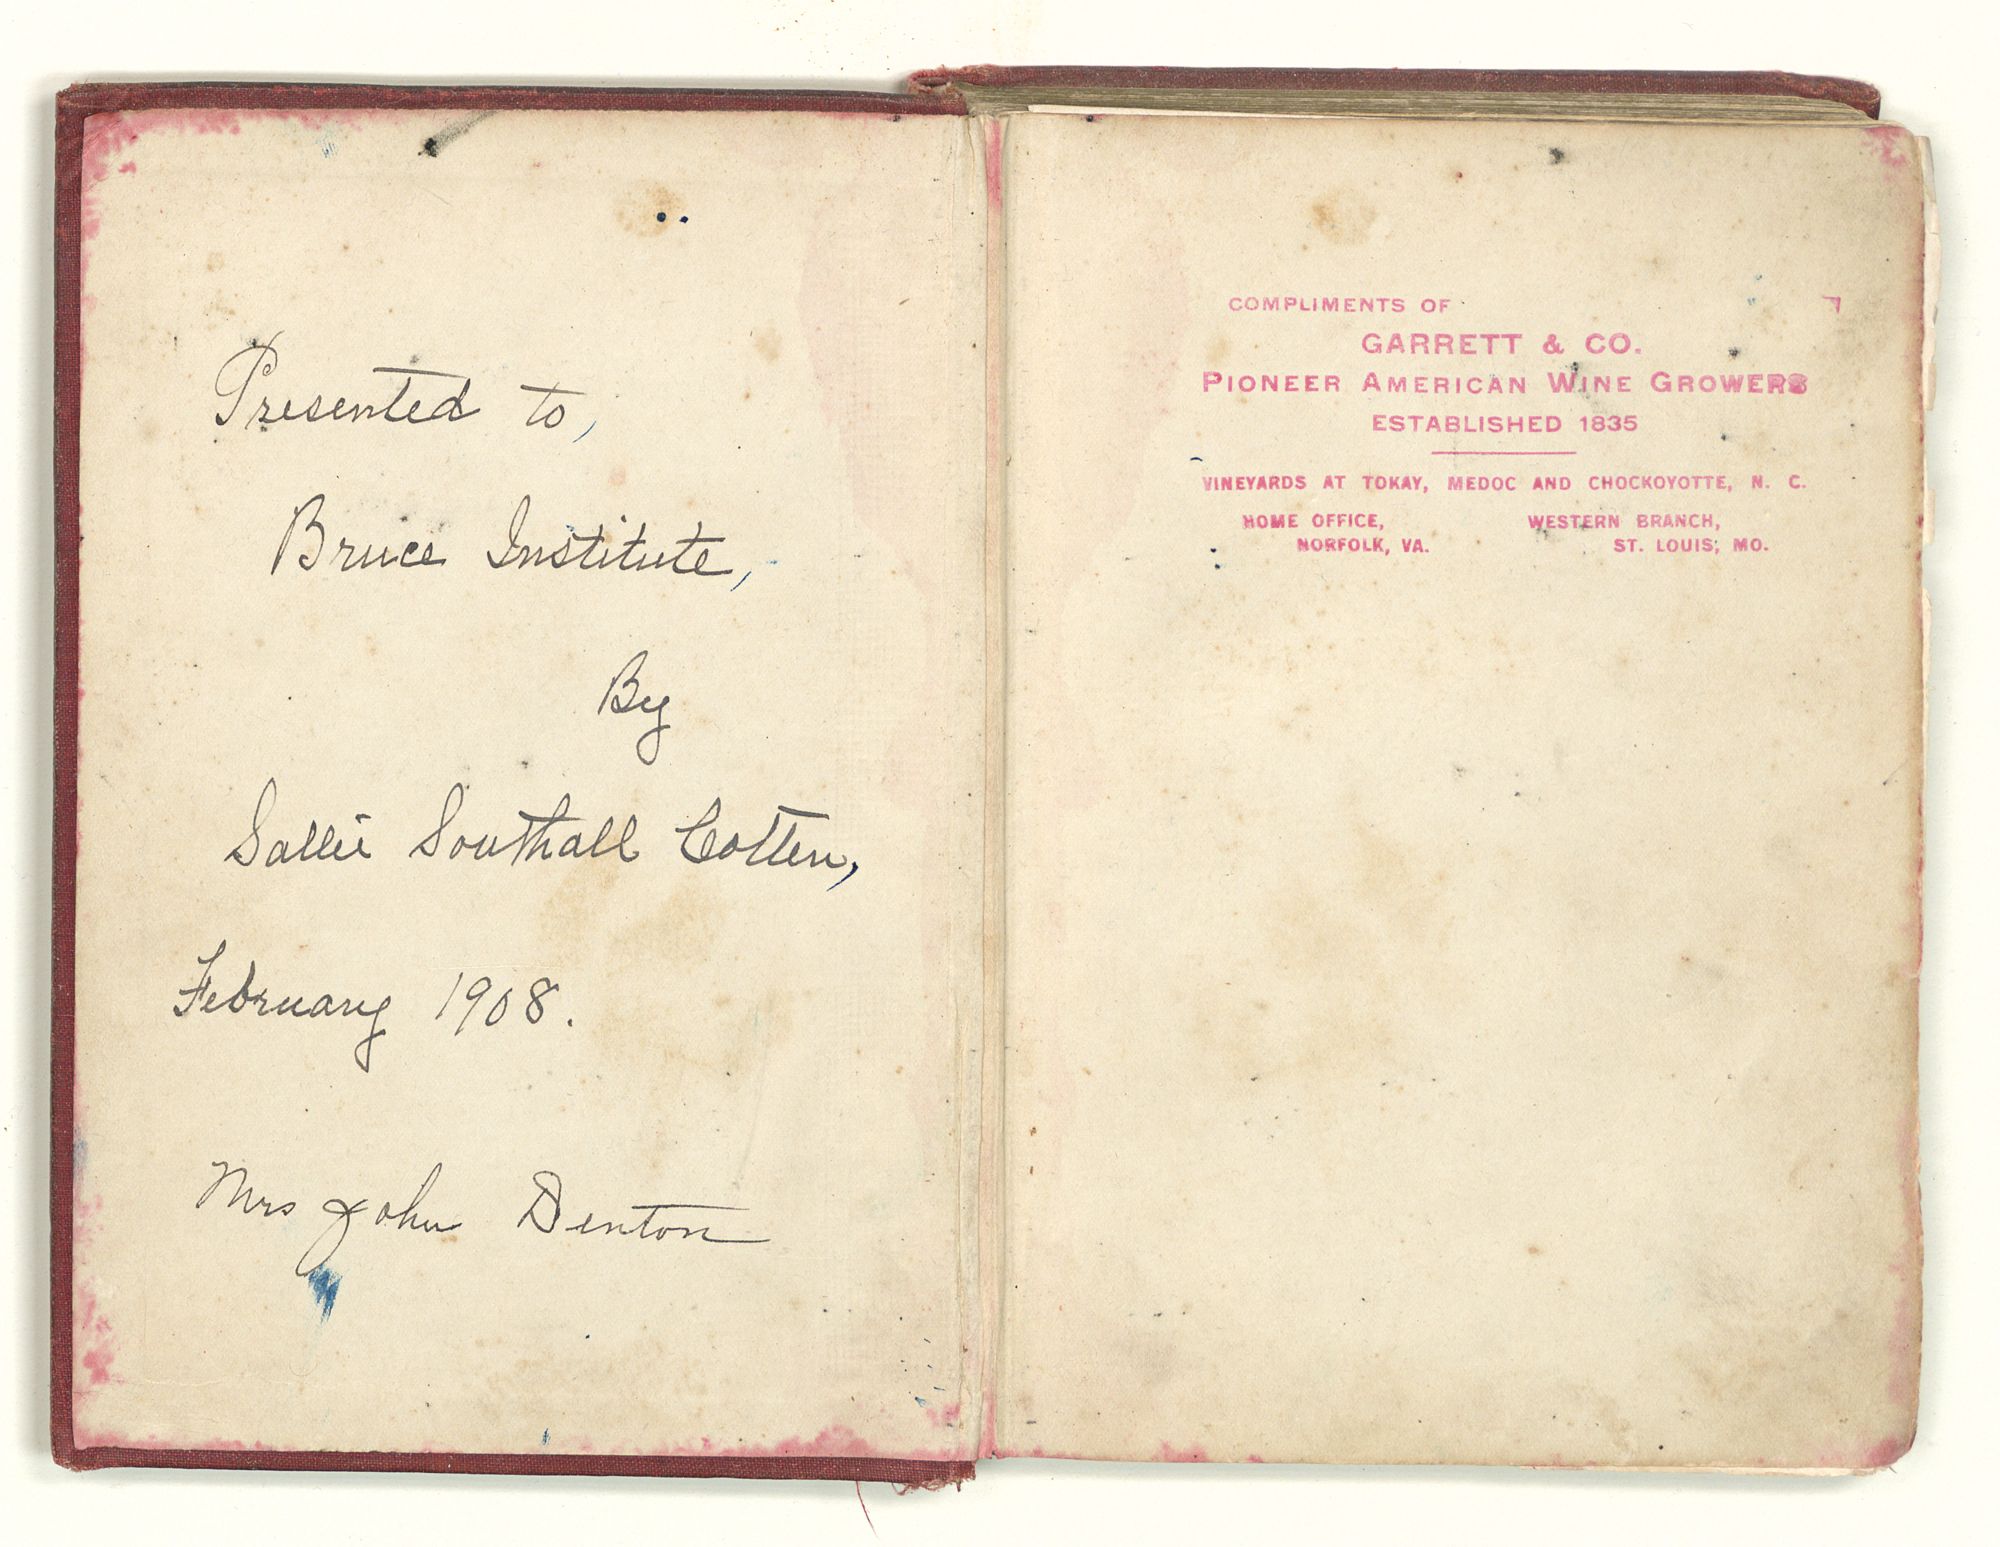 Presented to,
Bruce Institute,
By
Sallie Southall Cotten,
February 1908.
Mrs John Denton
COMPLIMENTS OF
GARRETT & CO.
PIONEER AMERICAN WINE GROWERS
ESTABLISHED 1835
VINEYARDS AT TOKAY, MEDOC AND CHOCKOYOTTE, N. C.
HOME OFFICE, WESTERN BRANCH,
NORFOLK, VA. ST. LOUIS, MO.